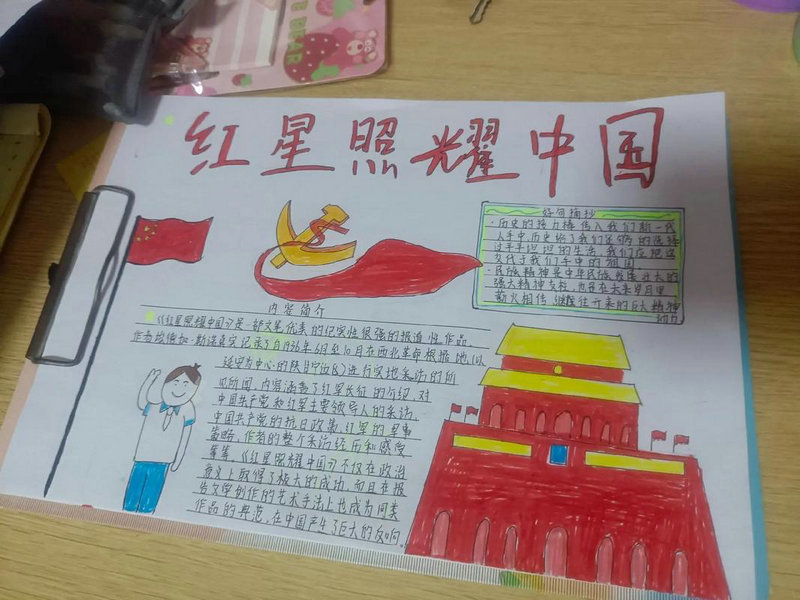 红星照耀中国
好句摘抄
·历史的接力棒传入我们新一代
人手中历史给了我们足够的选择
过平平淡淡的生活,我们在把这
交代于我们手中的祖国
·民族精神是中华民族发展壮大的
强大精神支柱,也是在未来岁月里
薪火相传,继往开来的巨大精神
动力
内容简介
《红星照耀中国》是一部文笔优美的纪实性很强的报道性作品。
作者埃德加·斯诺真实记录了自1936年6月至10月在西北革命根据地(以
延安为中心的陕甘宁边区)进行实地采访的所
见所闻,内容涵盖了红军长征的介绍,对
中国共产党和红军主要领导人的采访,
中国共产党的抗日政策,红军的军事
策略,作者的整个采访经历和感受
等等。《红星照耀中国》不仅在政治
意义上取得了极大的成功,而且在报
告文学创作的艺术手法上也成为同类
作品的典范,在中国产生了巨大的反响。
BEAR